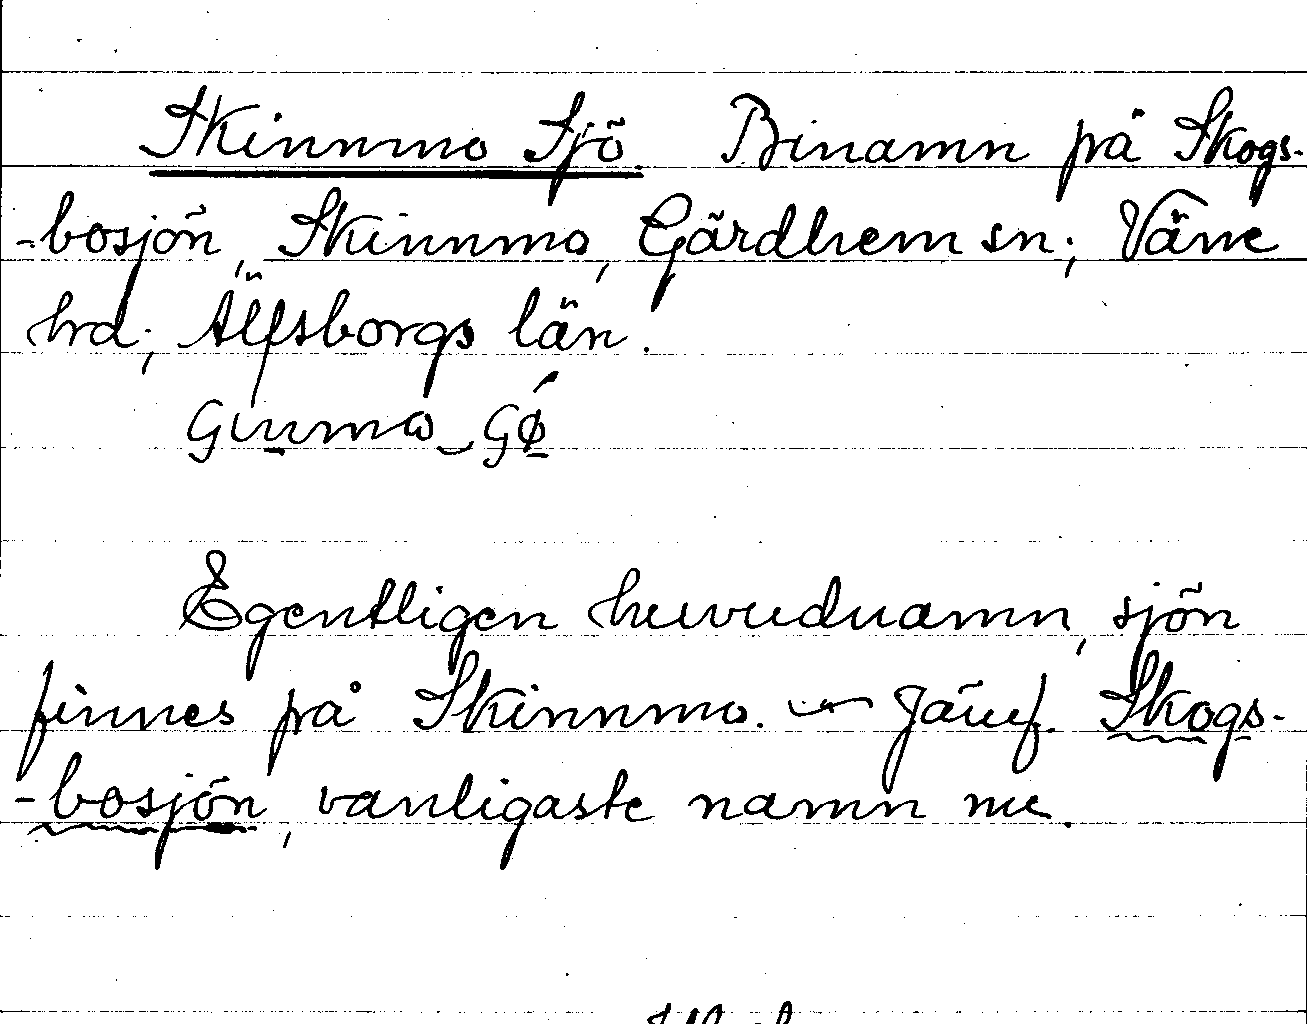 Skinnmo Sjö. Binamn på Skogs-
-bosjön, Skinnmo, Gärdhem sn; Väne
hrd; Älfsborgs län.
Egentligen huvudnamn, sjön
finnes på Skinnmo. — Jämf. Skogs-
-bosjön, vanligaste namn nu.